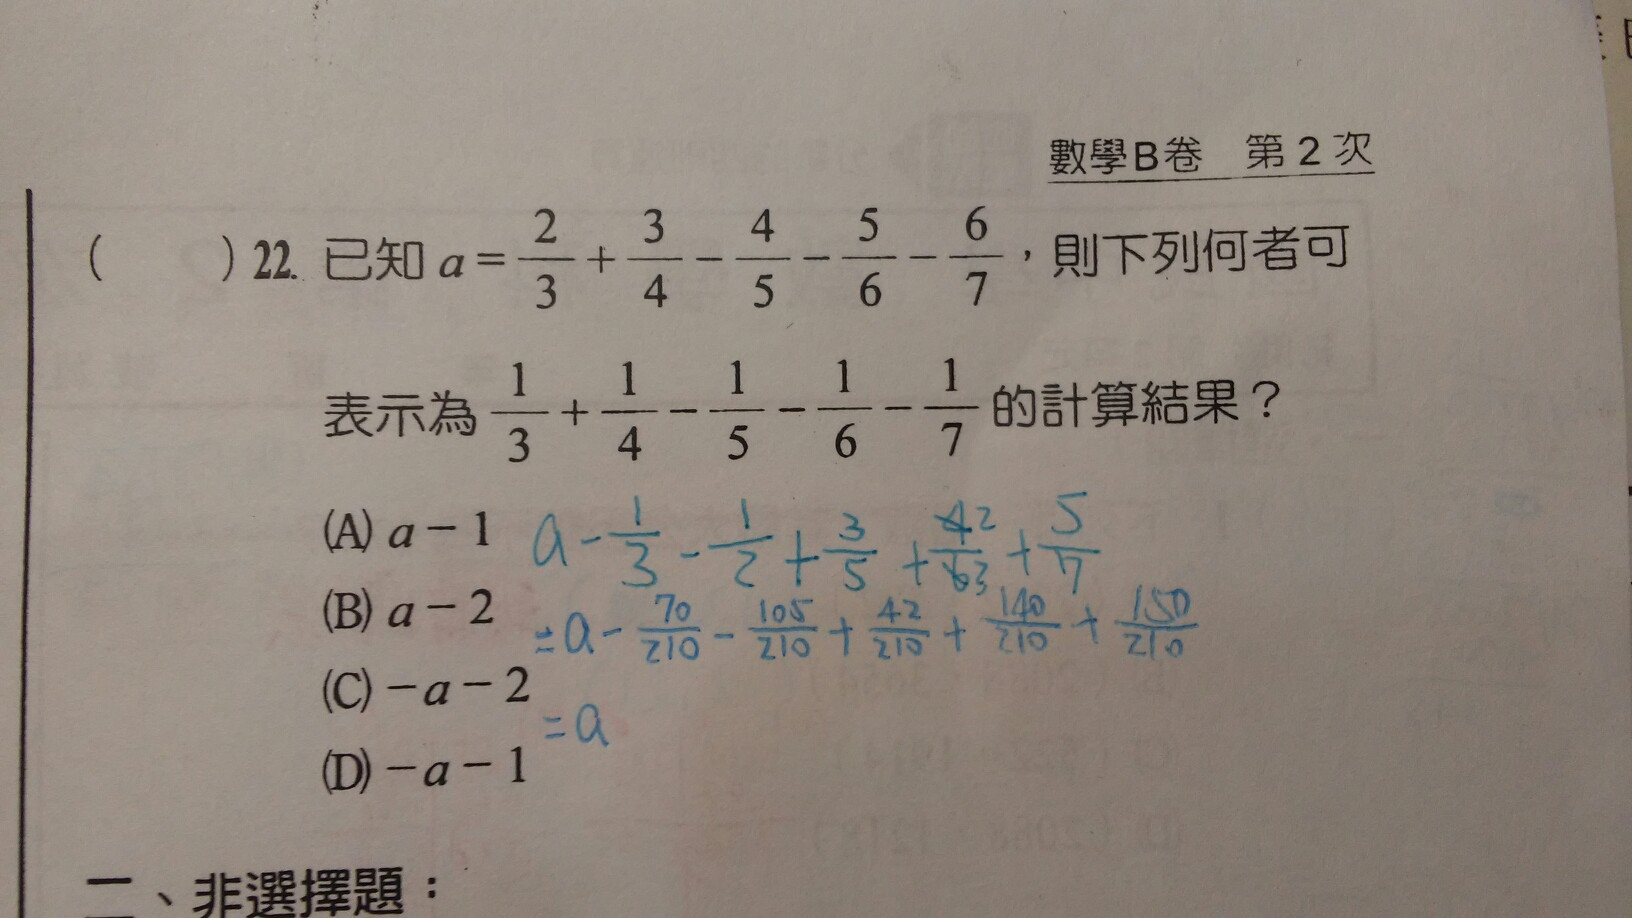 數學B卷 第2次
( )22. 已知 a = 2/3 + 3/4 − 4/5 − 5/6 − 6/7，則下列何者可
表示為 1/3 + 1/4 − 1/5 − 1/6 − 1/7 的計算結果？
(A) a − 1
a − 1/3 − 1/2 + 3/5 + 2/3 + 5/7
(B) a − 2
= a − 70/210 − 105/210 + 42/210 + 140/210 + 150/210
(C) −a − 2
= a
(D) −a − 1
二、非選擇題：